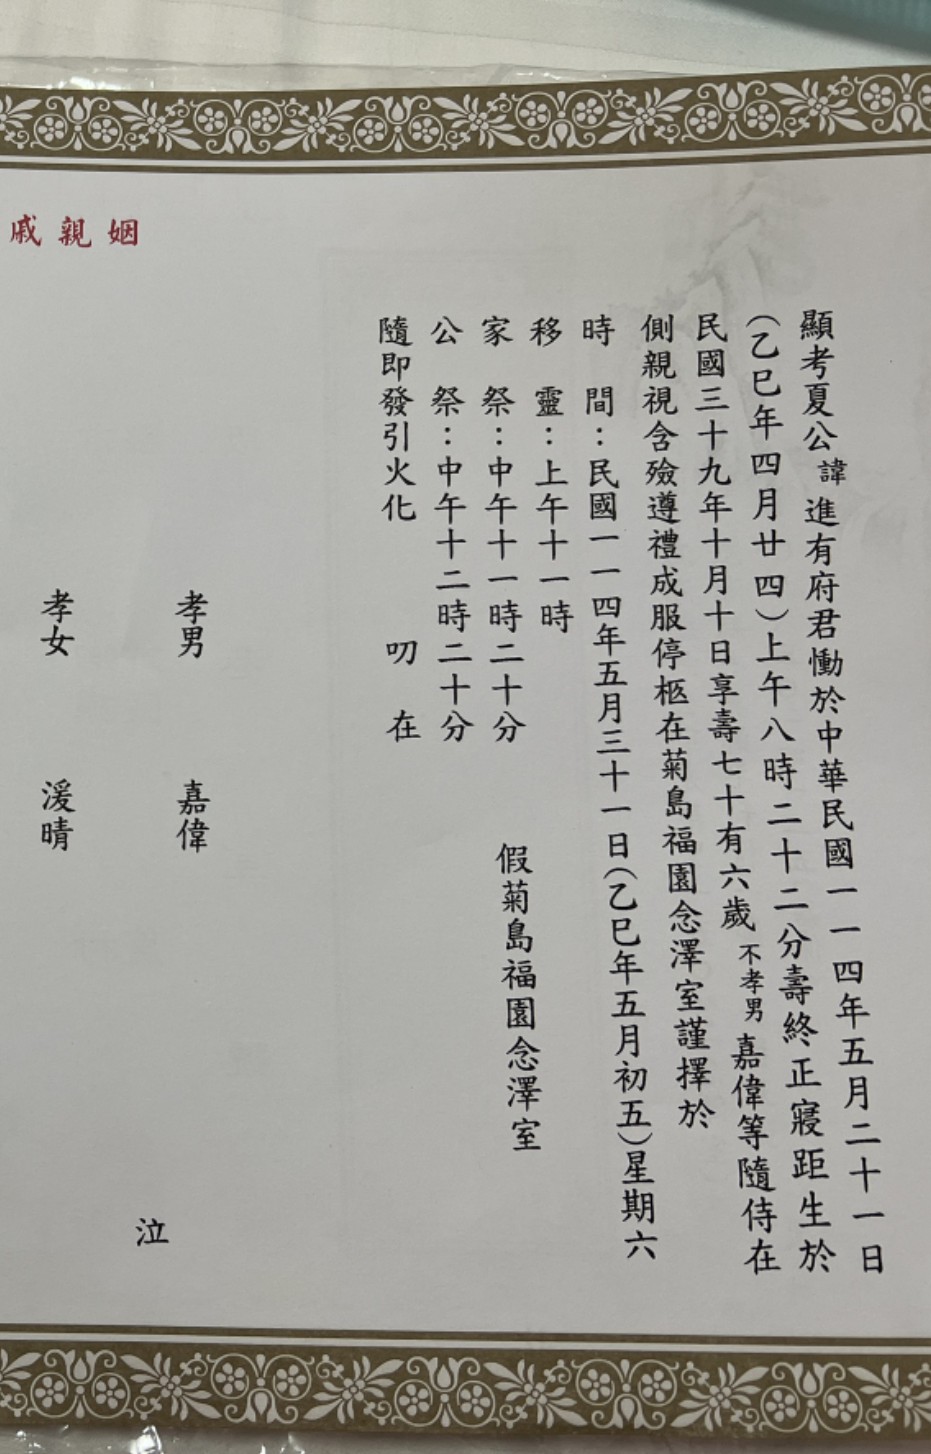 顯考夏公諱進有府君慟於中華民國一一四年五月二十一日
(乙巳年四月廿四)上午八時二十二分壽終正寢距生於
民國三十九年十月十日享壽七十有六歲不孝男嘉偉等隨侍在
側親視含殮遵禮成服停柩在菊島福園念澤室謹擇於
時間：民國一一四年五月三十一日(乙巳年五月初五)星期六
移靈：上午十一時
家祭：中午十一時二十分
假菊島福園念澤室
公祭：中午十二時二十分
隨即發引火化 叨在
姻親戚
孝男 嘉偉
泣
孝女 湲晴